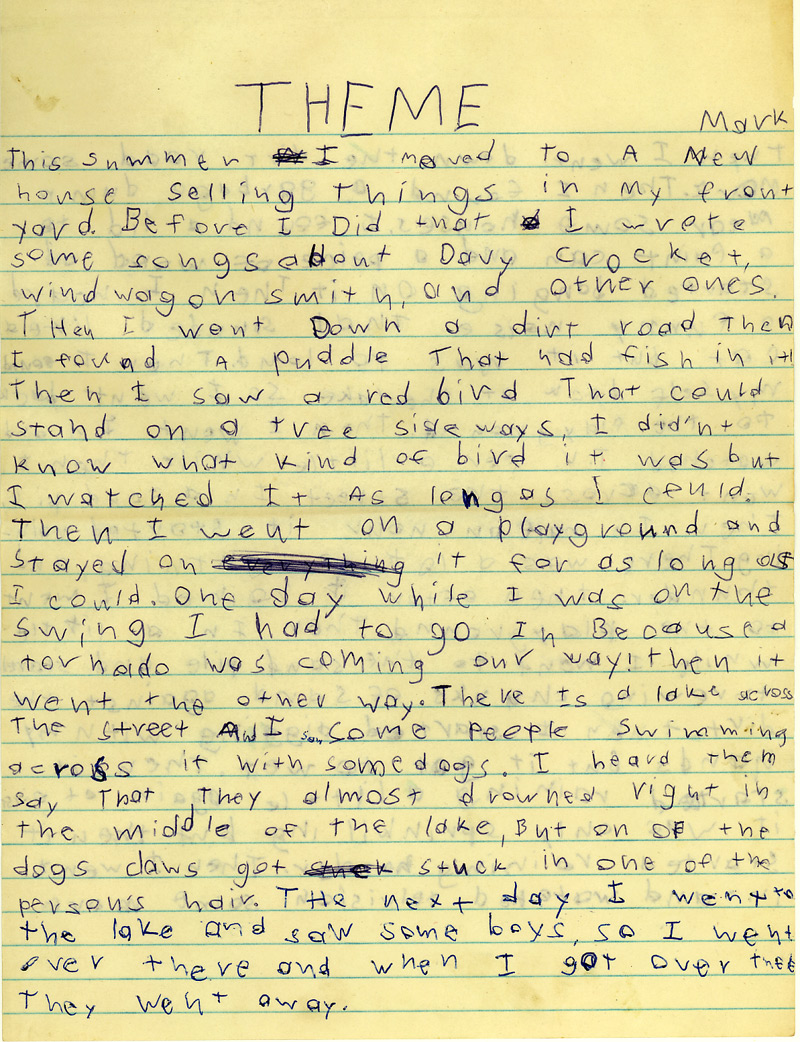 THEME
Mark
This summer I moved to A New
house selling things in my front
yard. Before I Did that I wrote
some songs about Davy crocket,
windwagon smith, and other ones.
THen I went Down a dirt road Then
I found A puddle That had fish in it!
Then I saw a red bird That could
stand on a tree side ways, I didn't
know what kind of bird it was but
I watched It As long as I could.
Then I went on a playground and
stayed on everything it for as long as
I could. One day while I was on the
swing I had to go In Because a
tornado was coming our way! then it
went the other way. There Is a lake across
The street And I saw some people swimming
across it with some dogs. I heard them
say That They almost drowned right in
the middle of the lake, But on OF the
dogs claws got stuck in one of the
person's hair. THe next day I went to
the lake and saw some boys, so I went
over there and when I got over there
They went away.